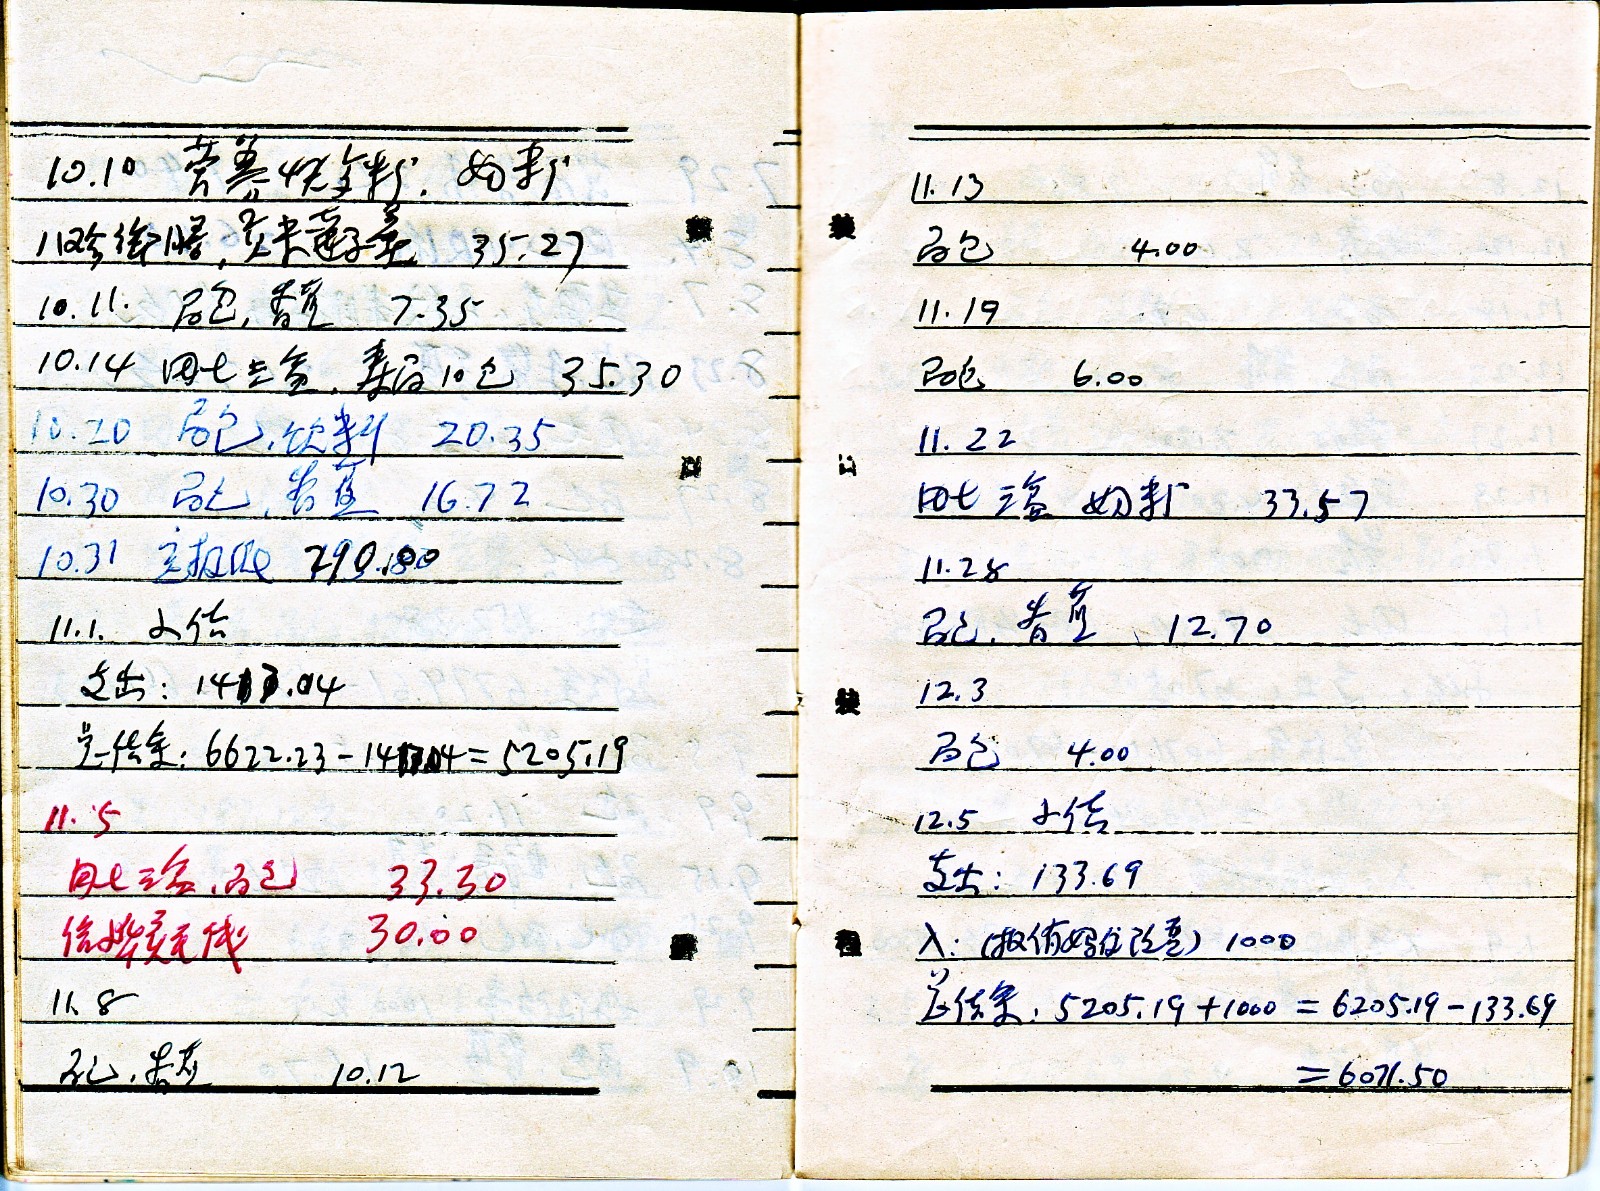 10.10 营养快餐粉. 奶粉
35.27
10.11. 面包, 香蕉 7.35
10.14 田七三宝, 寿面10包 35.30
10.20 面包, 饮料 20.35
10.30 面包, 香蕉 16.72
10.31 790.80
11.1. 小结
支出: 1417.04
总结余: 6622.23-1417.04=5205.19
11.5
田七三宝, 面包 33.30
30.00
11.8
面包, 香蕉 10.12
11.13
面包 4.00
11.19
面包 6.00
11.22
田七三宝 奶粉 33.57
11.28
面包, 香蕉 12.70
12.3
面包 4.00
12.5 小结
支出: 133.69
入: 1000
总结余: 5205.19+1000=6205.19-133.69
=6071.50